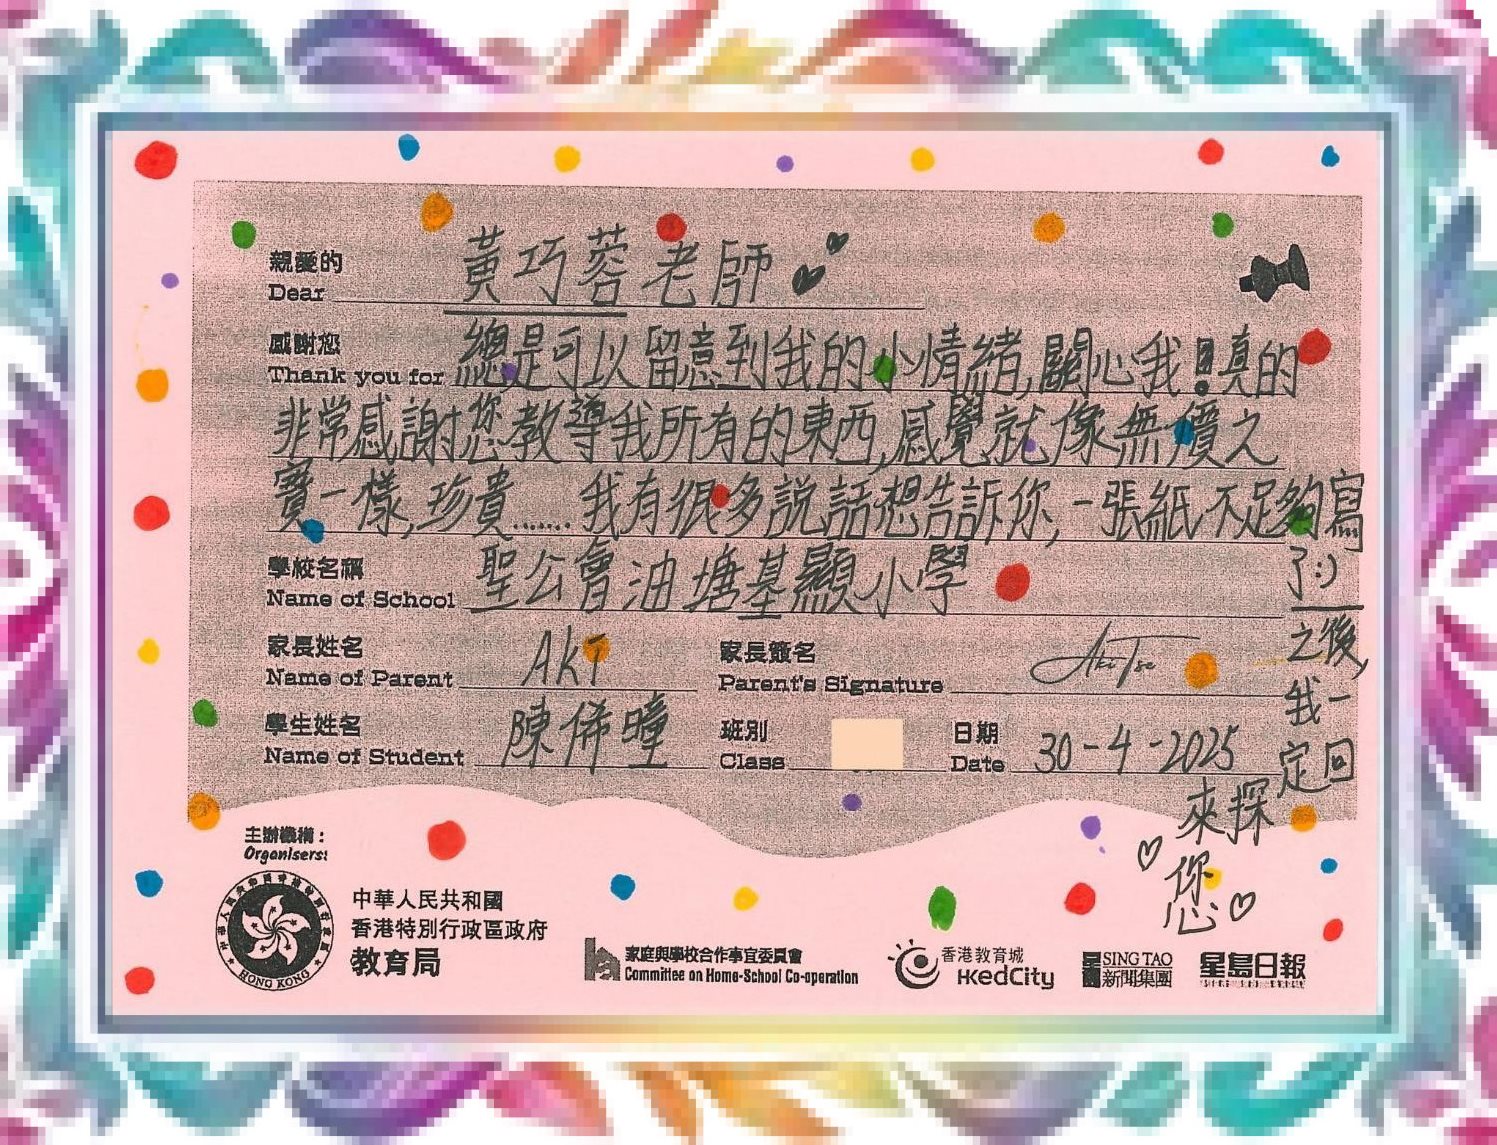 親愛的 黃巧蓉老師
Dear
感謝您 總是可以留意到我的小情緒,關心我!真的
Thank you for
非常感謝您教導我所有的東西,感覺就像無價之
寶一樣,珍貴…… 我有很多說話想告訴你,一張紙不足夠寫
了:)
學校名稱 聖公會油塘基顯小學
Name of School
之後,
我一
定回
來探
您
家長姓名 AKI 家長簽名 Aki Tse
Name of Parent Parent's Signature
學生姓名 陳俙曈 班別 日期 30-4-2025
Name of Student Class Date
主辦機構:
Organisers:
HONG KONG
中華人民共和國
香港特別行政區政府
教育局
家庭與學校合作事宜委員會
Committee on Home-School Co-operation
香港教育城
HKedCity
星島 SING TAO
新聞集團
星島日報